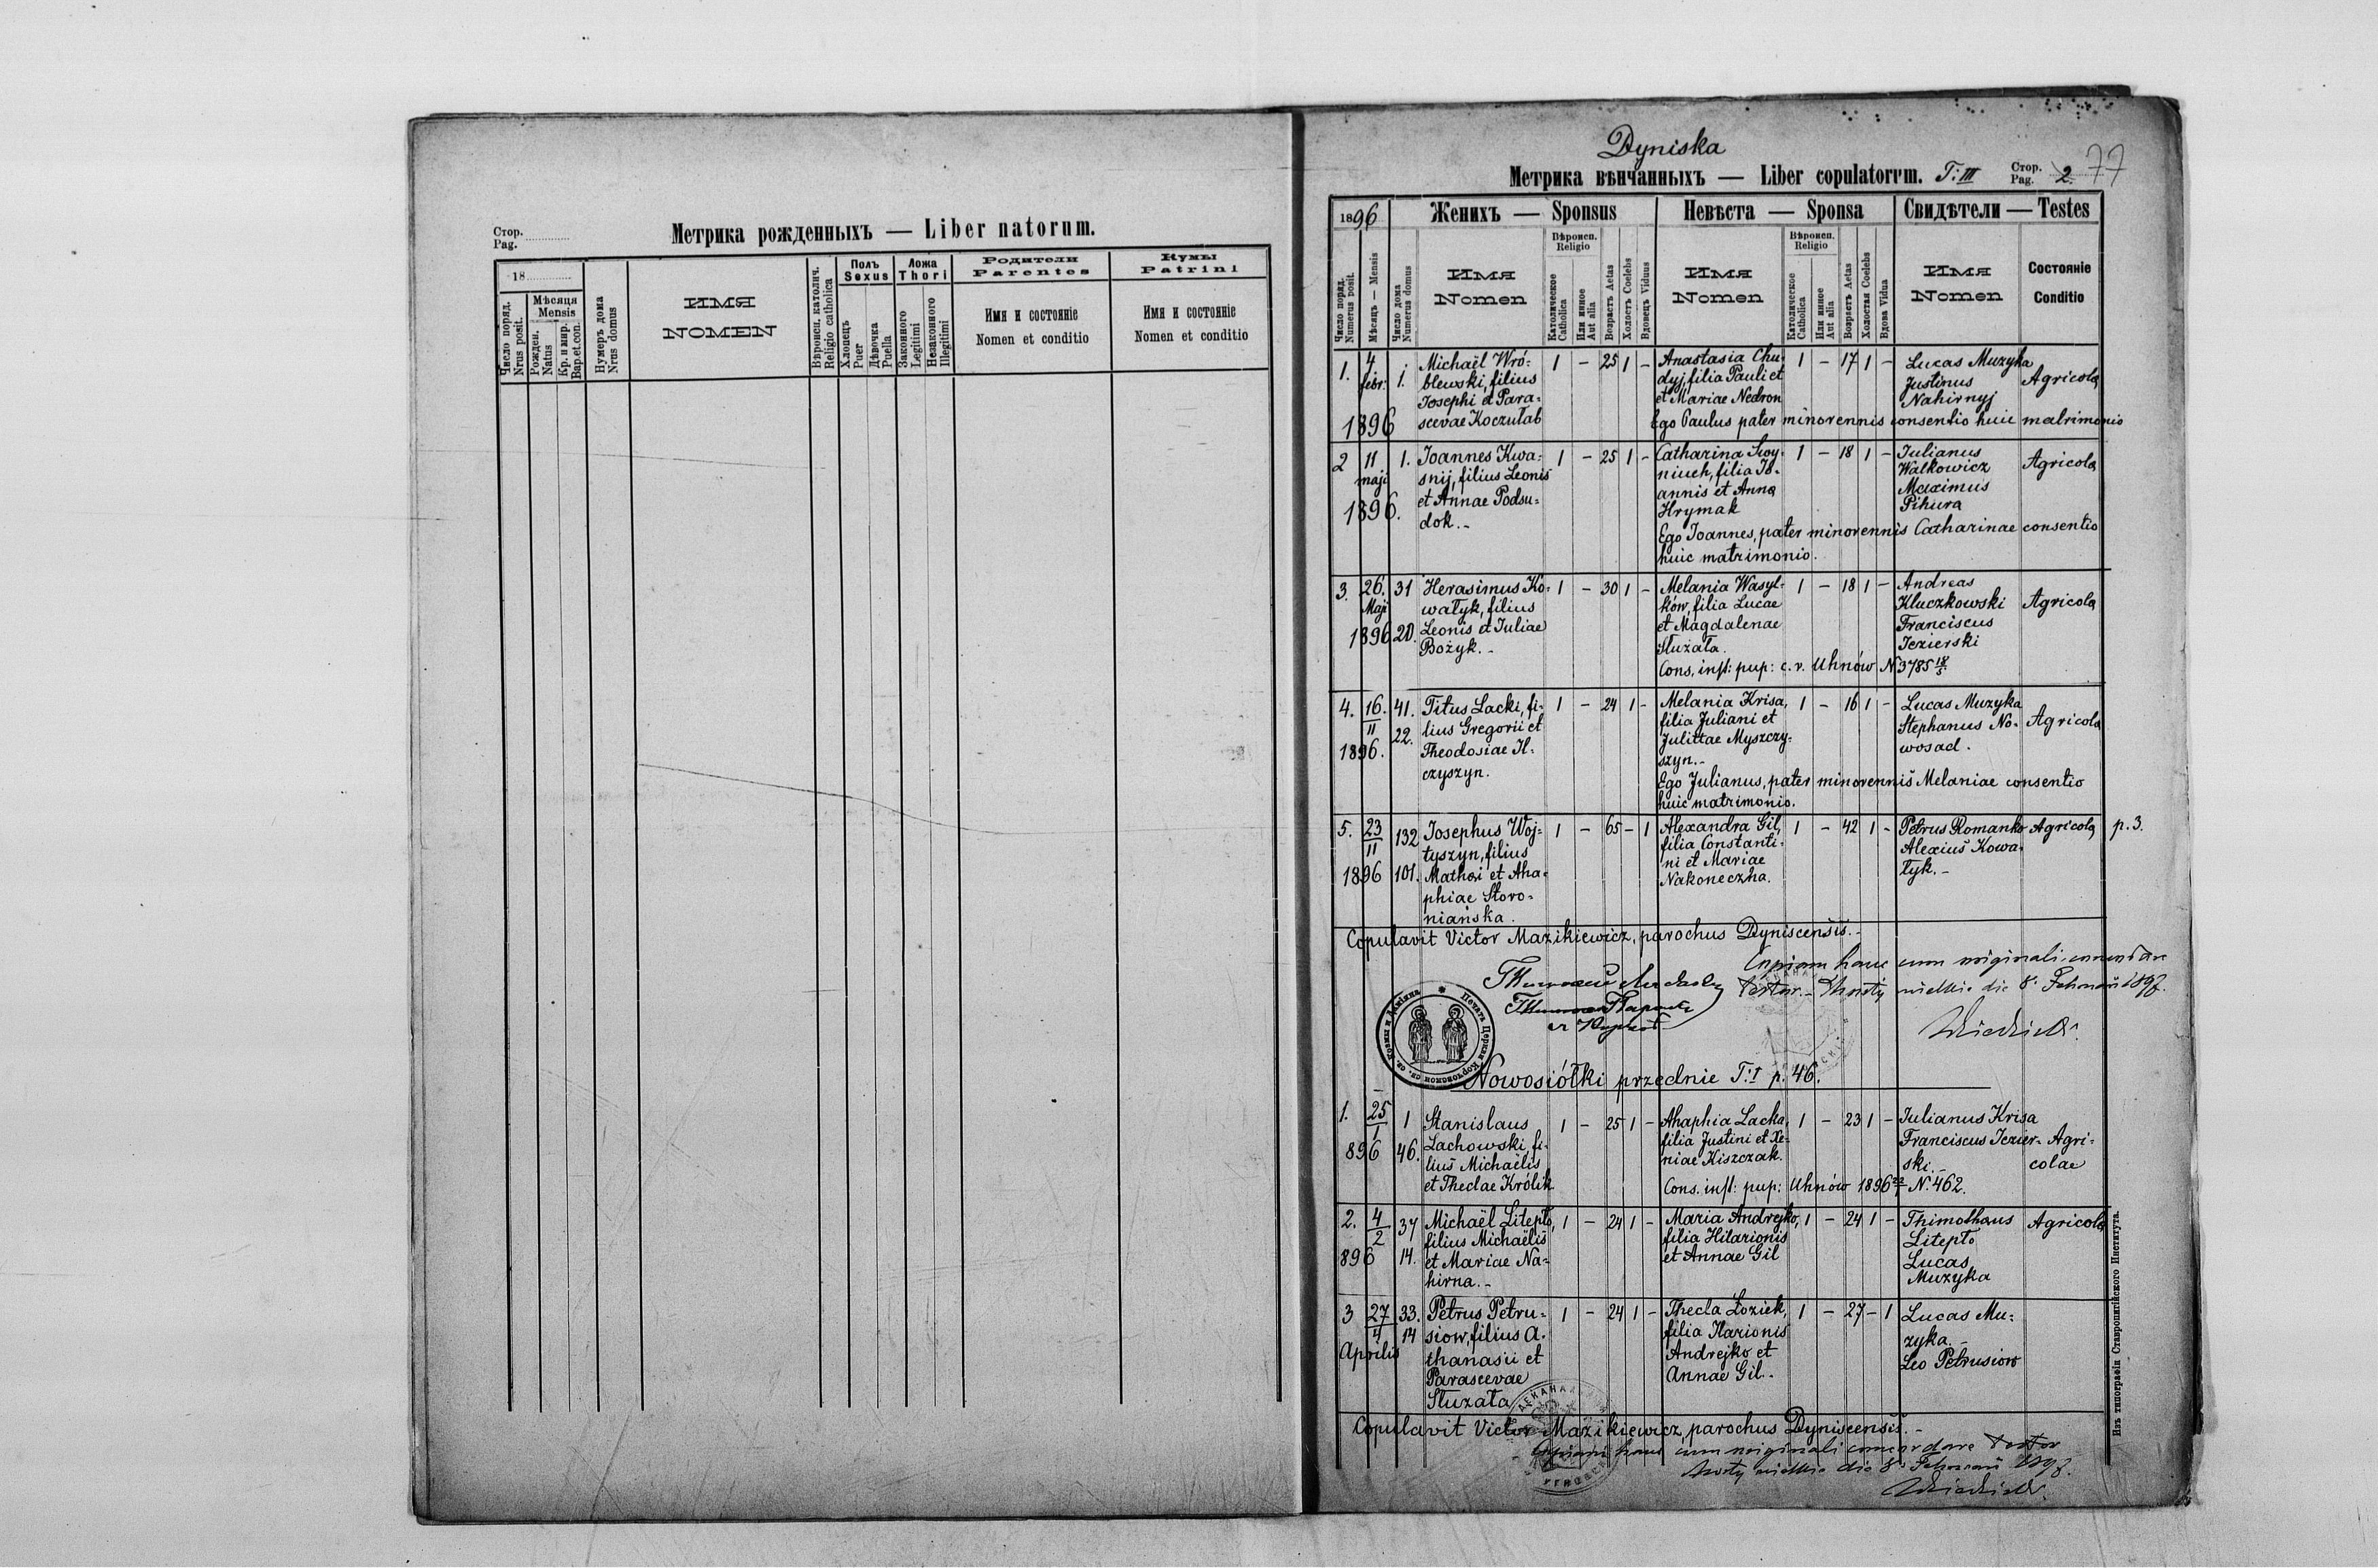 Стор.
Pag.
Метрика рожденныхъ — Liber natorum.
18
Число поряд.
Nrus posit.
Мѣсяця
Mensis
Рожден.
Natus
Кр. и мvр.
Bap.et.con.
Нумеръ дома
Nrus domus
ИМЯ
NOMEN
Вѣроисп. католич.
Religio catholica
Полъ
Sexus
Хлопецъ
Puer
Дѣвочка
Puella
Ложа
Thori
Законного
Legitimi
Незаконного
Illegitimi
Родители
Parentes
Имя и состояніе
Nomen et conditio
Кумы
Patrini
Имя и состояніе
Nomen et conditio
Dyniska
Метрика вѣнчанныхъ — Liber copulatorum. T: III
Стор.
Pag. 2. 77
1896
Женихъ — Sponsus
Невѣста — Sponsa
Свидѣтели — Testes
Число поряд.
Numerus posit.
Мѣсяцъ — Mensis
Число дома
Numerus domus
Имя
Nomen
Вѣроисп.
Religio
Католическое
Catholica
Или инное
Aut alia
Возрастъ Aetas
Холостъ Coelebs
Вдовецъ Viduus
Имя
Nomen
Вѣроисп.
Religio
Католическое
Catholica
Или инное
Aut alia
Возрастъ Aetas
Холостая Coelebs
Вдова Vidua
Имя
Nomen
Состояніе
Conditio
1. 4 Michaël Wró- 1 – 25 1 – Anastasia Chu- 1 – 17 1 – Lucas Muzyka
febr. 1. blewski, filius dyj, filia Pauli et Justinus Agricola
Josephi et Para- et Mariae Nedron Nahirnyj
1896 scevae Koczułab Ego Paulus pater minorennis consentio huic matrimonio
2 11 1. Joannes Kwa- 1 – 25 1 – Catharina Iwa- 1 – 18 1 – Julianus
maji snij, filius Leonis niuch, filia Jo- Walkowicz Agricola
et Annae Podsu- annis et Anna Maximus
1896. dok. – Hrymak Pihura
Ego Joannes, pater minorennis Catharinae consentio
huic matrimonio.
3. 26. 31 Herasimus Ko- 1 – 30 1 – Melania Wasyl- 1 – 18 1 – Andreas
Maji wałyk, filius ków, filia Lucae Kluczkowski Agricola
1896 20. Leonis et Juliae et Magdalenae Franciscus
Bożyk. – Służała. Jezierski
Cons. inst: pup: c. r. Uhnów N 3785 18/5
4. 16. 41. Titus Lacki, fi- 1 – 24 1 – Melania Krisa, 1 – 16 1 – Lucas Muzyka
11 22. lius Gregorii et filia Juliani et Stephanus No- Agricola
1896. Theodosiae Il- Julittae Myszczy- wosad.
czyszyn. szyn. –
Ego Julianus, pater minorennis Melaniae consentio
huic matrimonio.
5. 23 132 Josephus Woj- 1 – 65 – 1 Alexandra Gil, 1 – 42 1 – Petrus Romanko Agricola p. 3.
11 tyszyn, filius filia Constanti- Alexius Kowa-
1896 101. Mathei et Aha- ni et Mariae łyk. –
phiae Storo- Nakoneczna.
niańska.
Copulavit Victor Mazikiewicz, parochus Dyniscensis. –
Copiam hanc cum originali concordare
testor. – wielkie die 8. Februarii 1897.
Печать Церкви Корчовской св. св. Козмы и Даміяна
Nowosiółki przednie T: I p. 46.
1. 25 1 Stanislaus 1 – 25 1 – Ahaphia Lacka, 1 – 23 1 – Julianus Krisa
1 Lachowski, fi- filia Justini et Xe- Franciscus Jezier- Agri-
896 46. lius Michaëlis niae Kiszczak. ski. – colae
et Theclae Królik Cons. inst: pup: Uhnów 1896 22/1 N. 462.
2. 4 37 Michaël Litepło, 1 – 24 1 – Maria Andrejko, 1 – 24 1 – Thimotheus Agricola
2 filius Michaëlis filia Hilarionis Litepło
896 14. et Mariae Na- et Annae Gil Lucas
hirna. – Muzyka
3 27 33. Petrus Petru- 1 – 24 1 – Thecla Łoziek, 1 – 27 – 1 Lucas Mu-
4 14 siow, filius A- filia Ilarionis zyka. –
Aprilis thanasii et Andrejko et Leo Petrusiow
Parascevae Annae Gil. –
Służała
Copulavit Victor Mazikiewicz, parochus Dyniscensis. –
Copiam hanc cum originali concordare testor
wielkie die 8 Februarii 1897.
Изъ типографіи Ставропигійского Института.